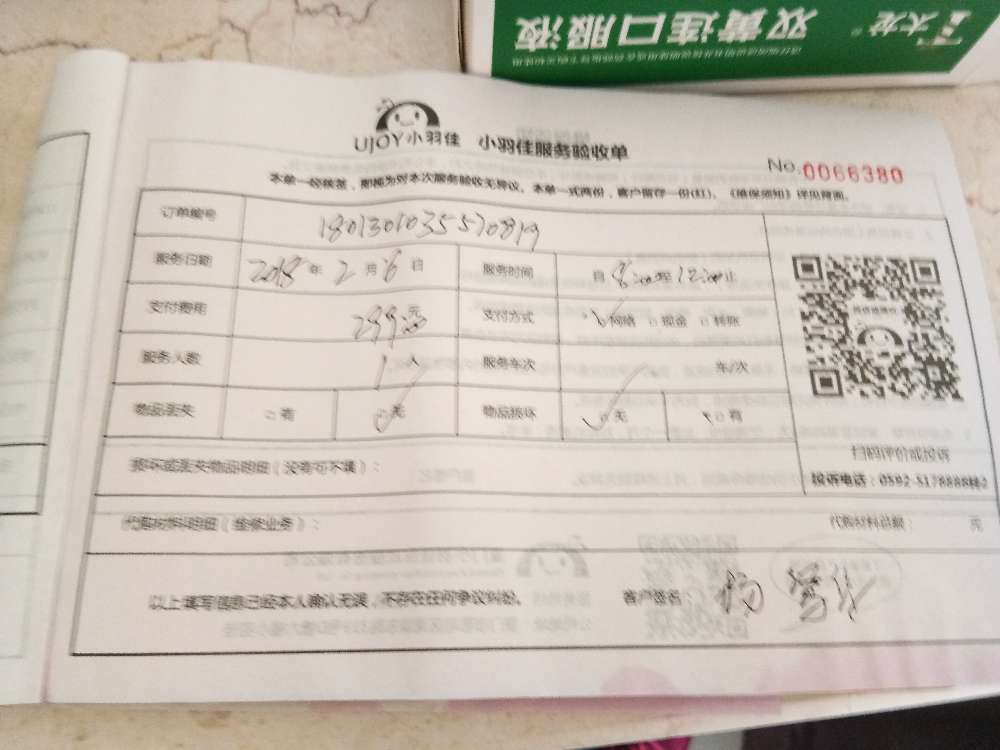 双黄连口服液
太龙
UJOY小羽佳 小羽佳服务验收单
No.0066380
本单一经核签，即视为对本次服务验收无异议。本单一式两份，客户留存一份(红)，《维保须知》详见背面。
订单编号 1801301035570819
服务日期 2018年2月6日 服务时间 自8:00至12:00止
支付费用 299元 支付方式 网络 现金 转账
服务人数 1人 服务车次 车/次
物品丢失 有 无 物品损坏 无 有
扫码评价或投诉
损坏或丢失物品明细（没有可不填）：
投诉电话：0592-5178888转2
代购材料明细（维修业务）： 代购材料总额： 元
以上填写信息已经本人确认无误，不存在任何争议纠纷。 客户签名：杨